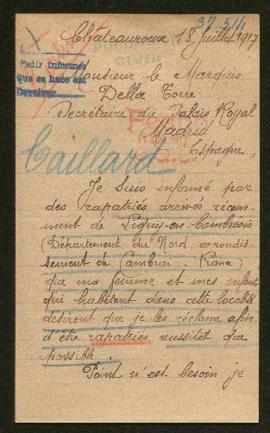 37.511
Châteauroux 18 juillet 1917
CIVIL
Pedir informes
que se hace así
Devolver
Monsieur le Marquis
Della Torre
Secrétaire du Palais Royal
Madrid
Espagne.
Caillard
Je suis informé par
des rapatriés arrivés récem-
ment de Ligny-en-Cambrésis
(Département du Nord, arrondis-
sement de Cambrai - France)
que ma femme et mes enfants
qui habitent dans cette localité
désirent que je les réclame afin
d'être rapatriés aussitôt que
possible.
Point n'est besoin je